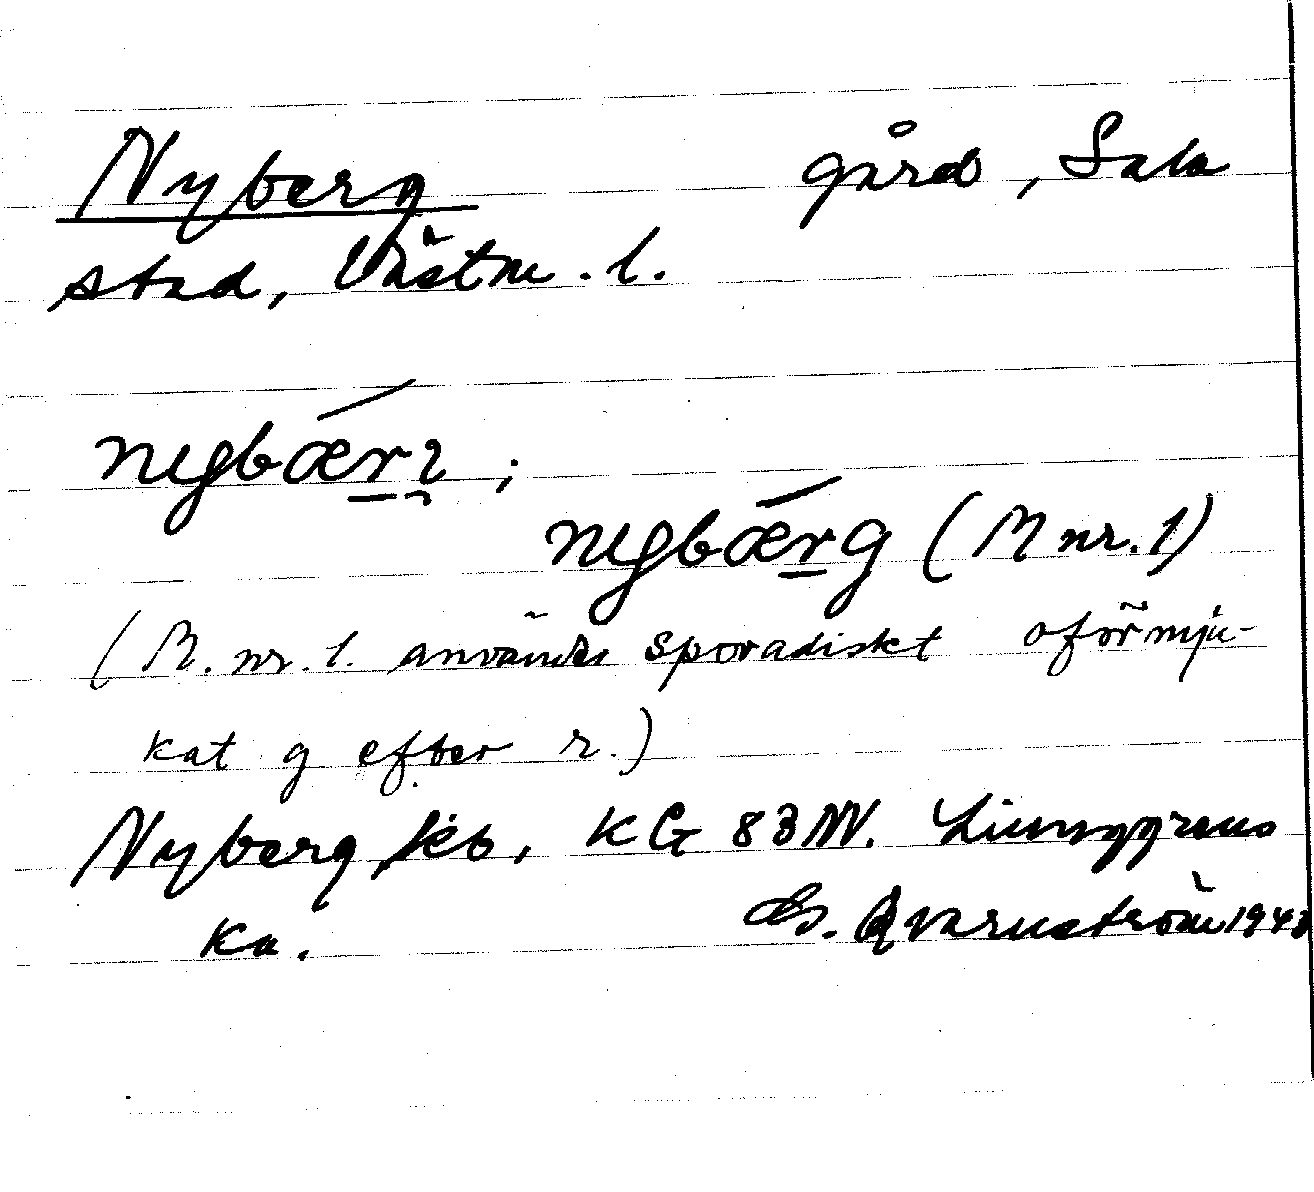 Nyberg gård, Sala
stad, Västm. l.
nybǽrɿ;
nybǽrg (M nr. 1)
(M. nr. 1. använder sporadiskt oförmju-
kat g efter r.)
Nyberg skb, KG 83 NV. Ljunggrens
ka. Qvarnström 1943